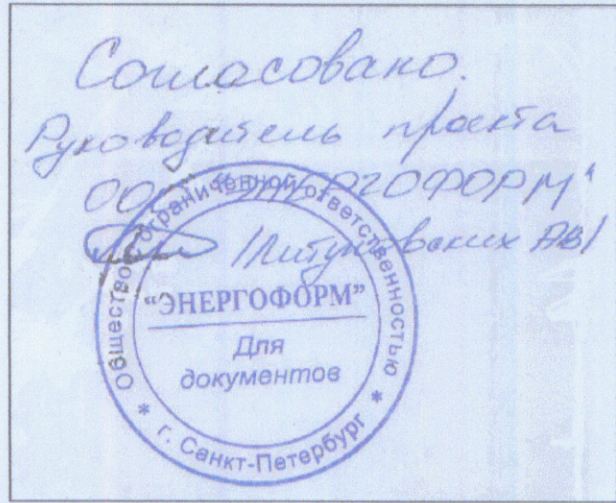 Согласовано.
Руководитель проекта
ООО "ЭНЕРГОФОРМ"
Общество с ограниченной ответственностью
"ЭНЕРГОФОРМ"
Для
документов
* г. Санкт-Петербург *